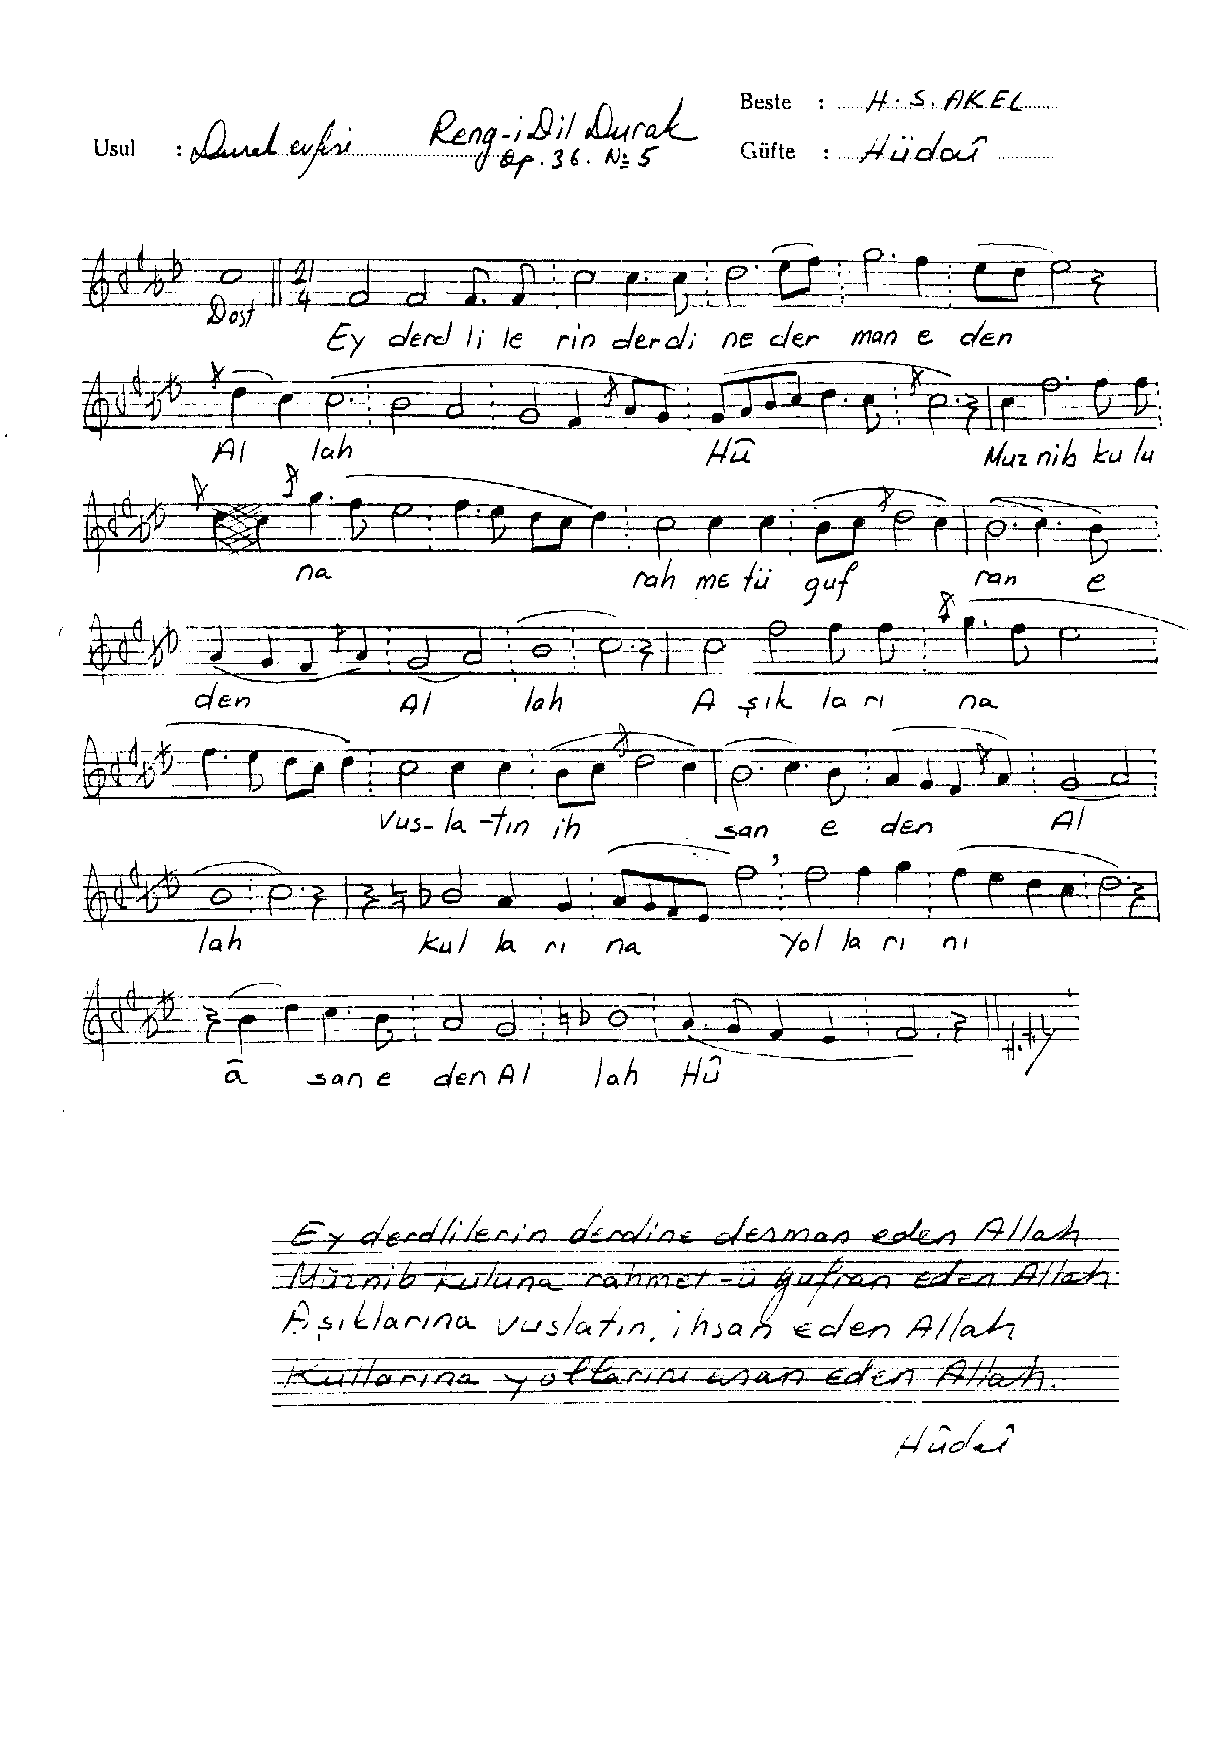 Beste : H. S. AKEL
Usul : Durak evferi Reng-i Dil Durak
Op. 36. No 5
Güfte : Hüdaî
21
4
Dost
Ey derd li le rin derdi ne der man e den
Al lah Hû Muz nib ku lu
na rah me tü guf ran e
den Al lah A şık la rı na
vus- la -tın ih san e den Al
lah kul la rı na Yol la rı nı
â san e den Al lah Hû
Ey derdlilerin derdine derman eden Allah
Müznib kuluna rahmet-ü gufran eden Allah
Aşıklarına vuslatın, ihsan eden Allah
Kullarına yollarını asan eden Allah.
Hûdaî